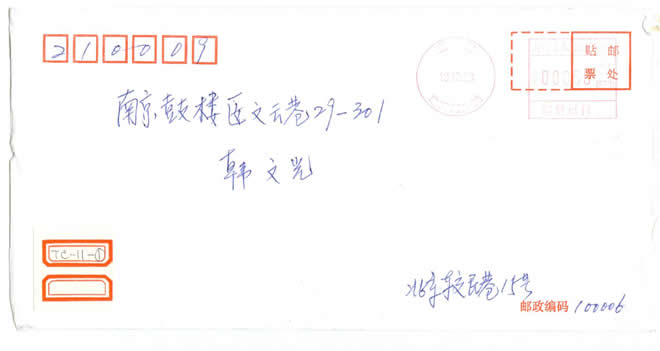 210009
贴 邮
票 处
南京鼓楼区文云巷29-301
韩文光
TC-11-①
北京东交民巷15号
邮政编码 100006